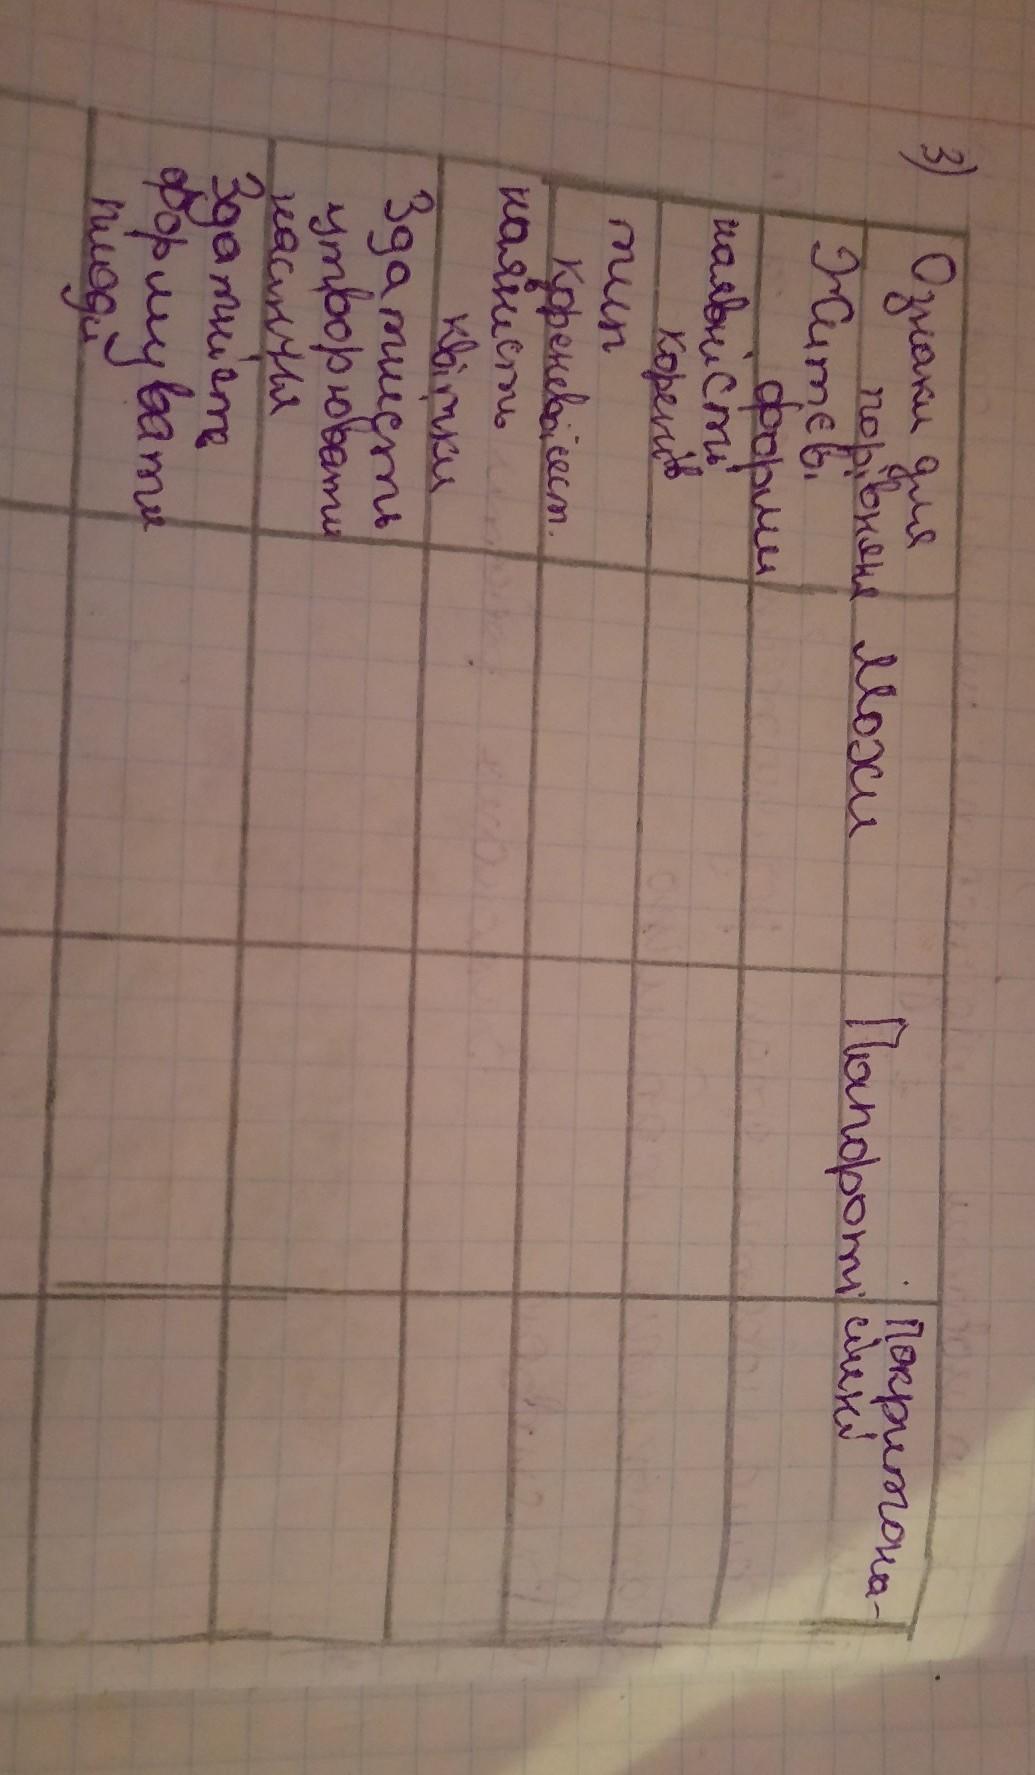 3)
Ознаки для
порівняня
Мохи
Папороті
Покритона-
сінні
Життєві
форми
наявність
коренів
тип
кореневоі сист.
наявність
квітки
Здатність
утворювати
насіння
Здатність
формувати
плоди